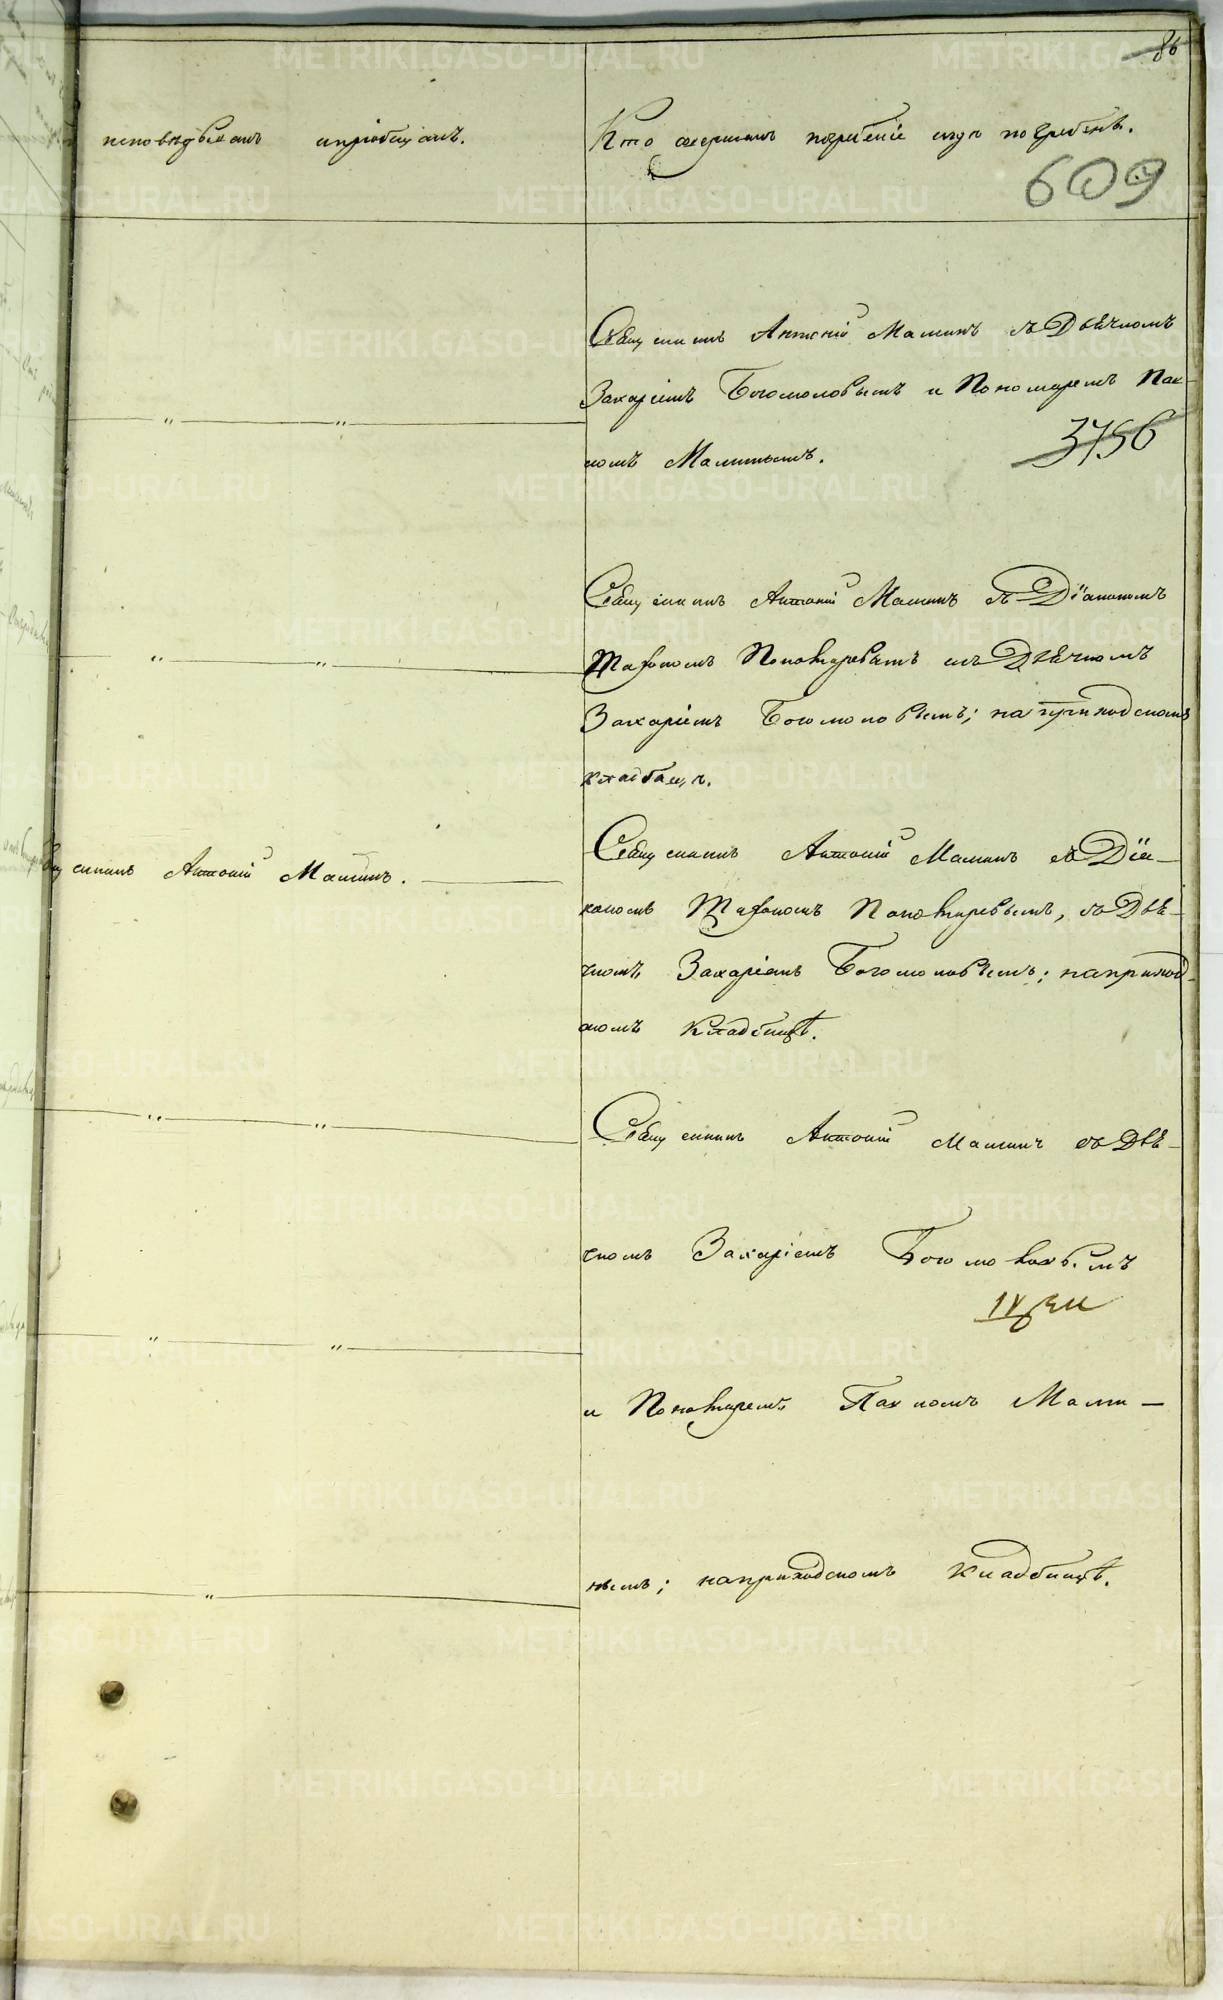 86
исповѣдывалъ и пріобщалъ.
Кто совершалъ погребеніе и гдѣ погребенъ.
609
Священникъ Антоній Маминъ съ Дьячкомъ
Захаріемъ Богомоловымъ и Пономаремъ Пах-
3756
номъ Маминымъ.
Священникъ Антоній Маминъ съ Діакономъ
Пономаревымъ съ Дьячкомъ
Захаріемъ Богомоловымъ; на приходскомъ
кладбищѣ.
Священникъ Антоній Маминъ.
Священникъ Антоній Маминъ съ Діа-
кономъ Пономаревымъ, съ Дья-
чкомъ Захаріемъ Богомоловымъ; на приход-
скомъ кладбищѣ.
Священникъ Антоній Маминъ съ Дья-
чкомъ Захаріемъ Богомоловымъ
и Пономаремъ Пахномъ Мами-
нымъ; на приходскомъ кладбищѣ.
METRIKI.GASO-URAL.RU